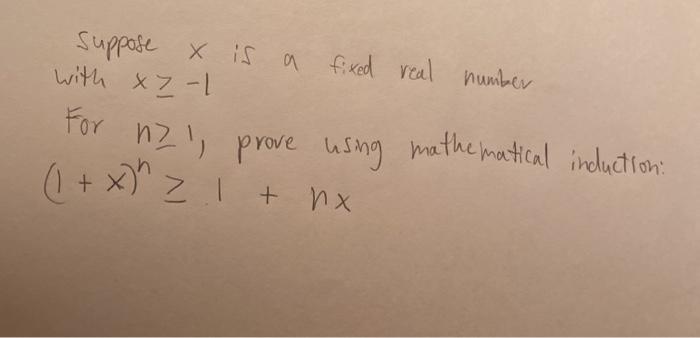 Suppose x is a fixed real number
with x ≥ -1
For n ≥ 1, prove using mathematical induction:
(1 + x)ⁿ ≥ 1 + nx